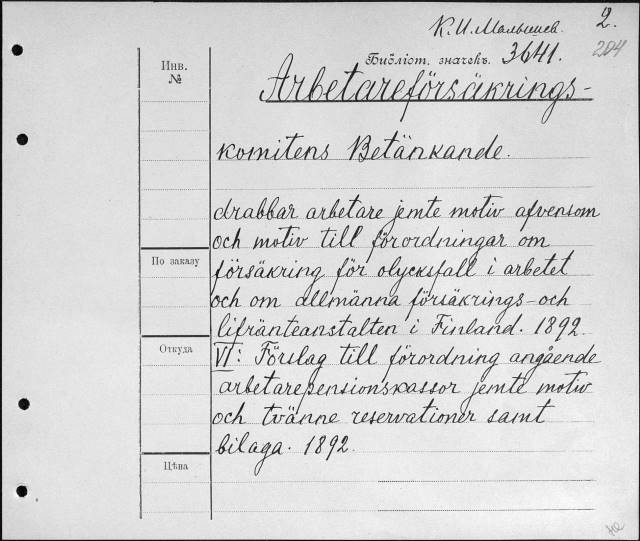 К. И. Малышев. 2.
204
Библіот. значекъ. 3641.
Инв.
№
Arbetareförsäkrings-
komitens Betänkande.
drabbar arbetare jemte motiv afvensom
och motiv till förordningar om
По заказу
försäkring för olycksfall i arbetet
och om allmänna försäkrings- och
lifränteanstalten i Finland. 1892.
Откуда
VI: Förslag till förordning angående
arbetarepensionskassor jemte motiv
och tvänne reservationer samt
bilaga. 1892.
Цѣна